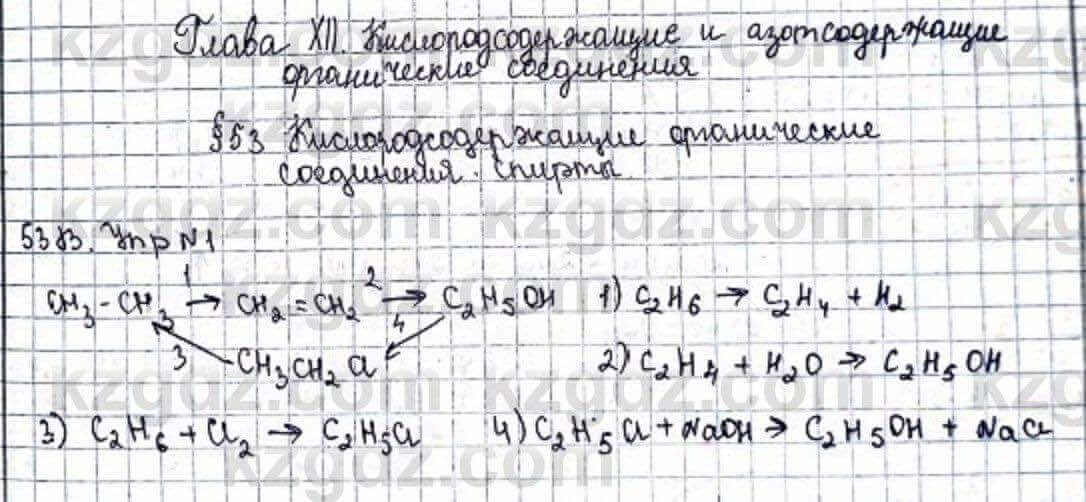 Глава XII. Кислородсодержащие и азотсодержащие
органические соединения
§53 Кислородсодержащие органические
соединения. Спирты
53В. Упр №1
CH₃ - CH₃ 1→ CH₂ = CH₂ 2→ C₂H₅OH 1) C₂H₆ → C₂H₄ + H₂
3 CH₃CH₂Cl 4 2) C₂H₄ + H₂O → C₂H₅OH
3) C₂H₆ + Cl₂ → C₂H₅Cl 4) C₂H₅Cl + NaOH → C₂H₅OH + NaCl
kzgdz.com